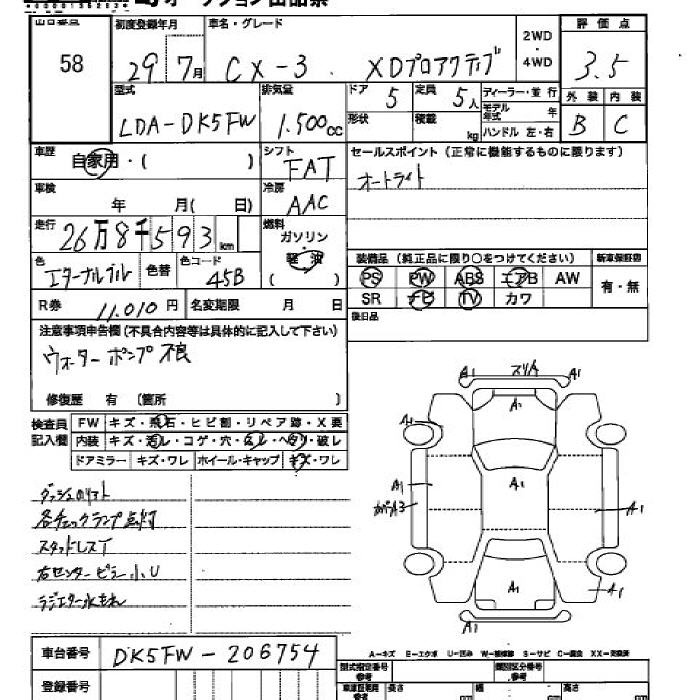 出品番号 初度登録年月 車名・グレード 2WD・4WD 評価点
58 29年 7月 CX-3 XDプロアクティブ 3.5
型式 排気量 ドア 定員 ディーラー・並行 外装 内装
LDA-DK5FW 1.500cc 5 5人 モデル年式 年 B C
形状 積載 kg ハンドル 左・右
車歴 自家用・( ) シフト FAT セールスポイント(正常に機能するものに限ります)
車検 年 月( 日) 冷房 AAC オートライト
走行 26万8千593km 燃料 ガソリン・軽油 ( )
色 エターナルブル 色替 色コード 45B
装備品(純正品に限り○をつけてください) 新車保証書
PS PW ABS エアB AW 有・無
SR ナビ TV カワ
R券 11.010円 名変期限 月 日 後日品
注意事項申告欄(不具合内容等は具体的に記入して下さい)
ウォーターポンプ不良
修復歴 有 (箇所 )
検査員記入欄 FW キズ・飛石・ヒビ割・リペア跡・X要
内装 キズ・汚レ・コゲ・穴・ムレ・ヘタリ・破レ
ドアミラー キズ・ワレ ホイール・キャップ キズ・ワレ
各チェックランプ点灯
スタッドレスT
右センターピラー小U
ラジエター水もれ
A1 スリA A1
A2
A1 A1
A1 A1
A3 A1
A1 A1
A1
A-キズ E-エクボ U-凹み W-補修跡 S-サビ C-腐食 XX-交換済
車台番号 DK5FW-206754
型式指定番号 参考 類別区分番号 参考
登録番号 長さ 幅 高さ